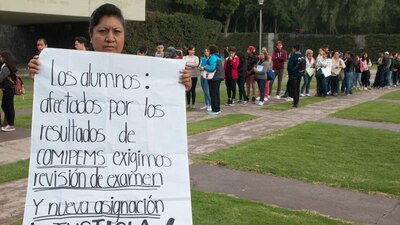 Los alumnos:
afectados por los
resultados de
COMIPEMS exigimos
revisión de examen
Y nueva asignación
¡JUSTICIA!